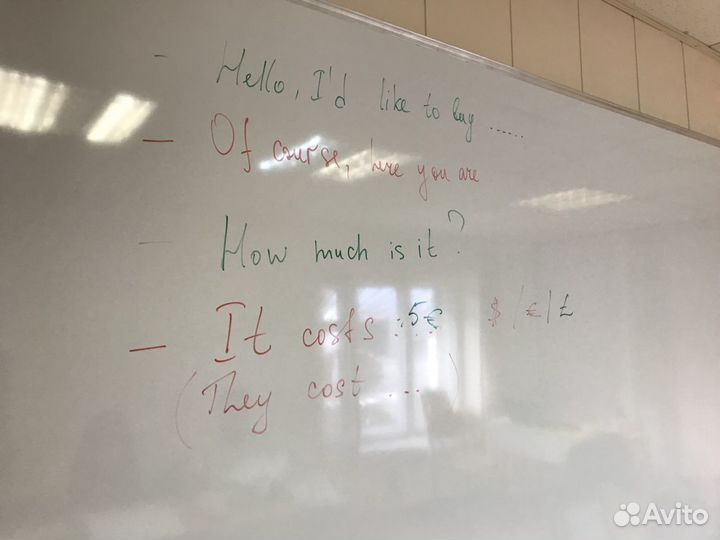 - Hello, I'd like to buy .....
- Of course, here you are
- How much is it?
- It costs :5€ $/€/£
(They cost ...)
Avito